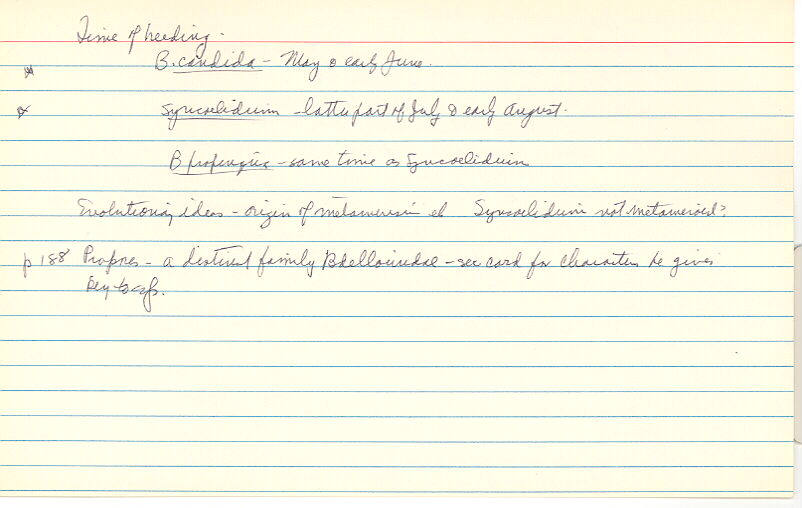 Time of breeding -
B. candida - May & early June.
Syncoelidium - latter part of July & early August.
B propinqua - same time as Syncoelidium
Evolutionary ideas - origin of metamerism etc Syncoelidium not metameroid?
p 188 Propres - a distinct family Bdellouridae - see card for characters he gives
Key to